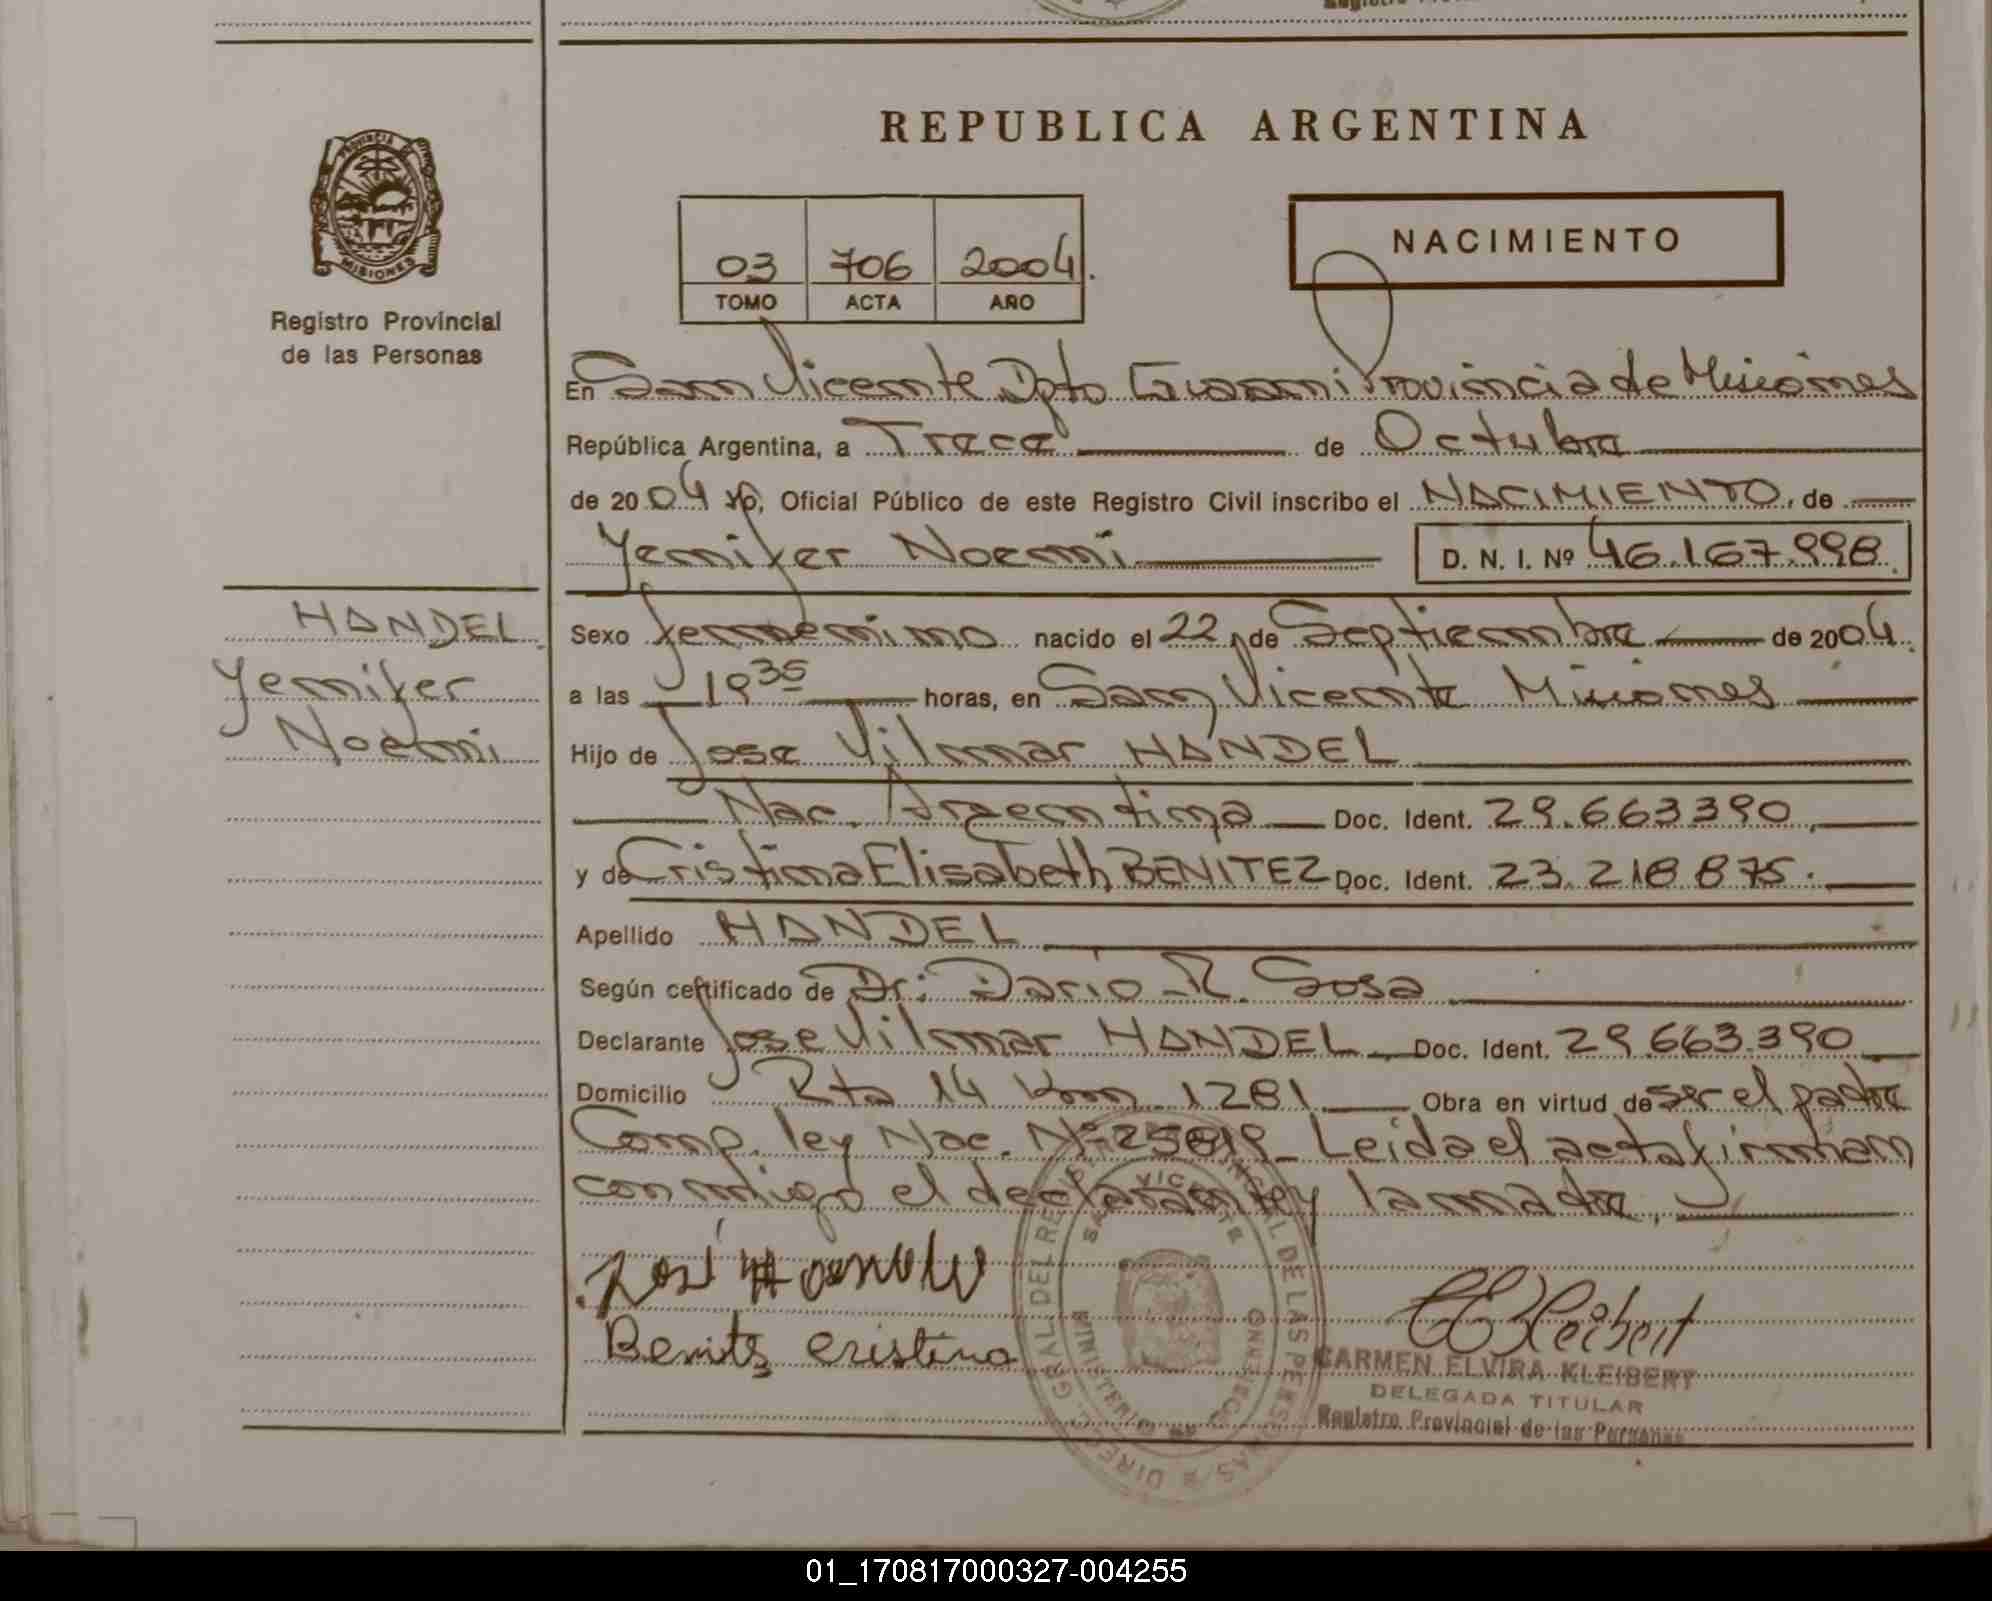 REPUBLICA ARGENTINA
PROVINCIA DE
MISIONES
Registro Provincial
de las Personas
NACIMIENTO
03 706 2004.
TOMO ACTA AÑO
En San Vicente Dpto Guarani Provincia de Misiones
República Argentina, a Trece de Octubre
de 2004 yo, Oficial Público de este Registro Civil inscribo el NACIMIENTO, de
Yenifer Noemi D. N. I. Nº 46.167.998.
HANDEL
Yenifer
Noemi
Sexo femenino nacido el 22 de Septiembre de 2004.
a las 19 35 horas, en San Vicente Misiones
Hijo de Jose Vilmar HANDEL
Nac. Argentina Doc. Ident. 29.663390
y de Cristina Elisabeth BENITEZ Doc. Ident. 23.218.875.
Apellido HANDEL
Según certificado de Dr: Dario R. Sosa
Declarante Jose Vilmar HANDEL Doc. Ident. 29.663.390
Domicilio Rta 14 Km 1281 Obra en virtud de ser el padre
Comp. ley Nac. Nº 25819_ Leida el acta firman
conmigo el declarante y la madre.
José Handel
Benitz Cristina
CEKleibert
CARMEN ELVIRA KLEIBERT
DELEGADA TITULAR
Registro Provincial de las Personas
SAN VICENTE
01_170817000327-004255